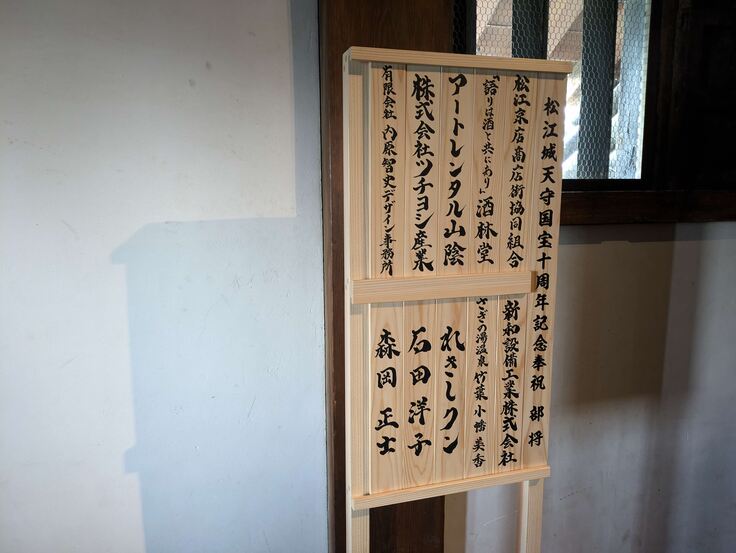 松江城天守国宝十周年記念奉祝 部将
松江京店商店街協同組合
「語りは酒と共にあり」酒林堂
アートレンタル山陰
株式会社ツチヨシ産業
有限会社 内原智史デザイン事務所
新和設備工業株式会社
さぎの湯温泉 竹葉 小幡美香
れきしクン
石田洋子
森岡正士